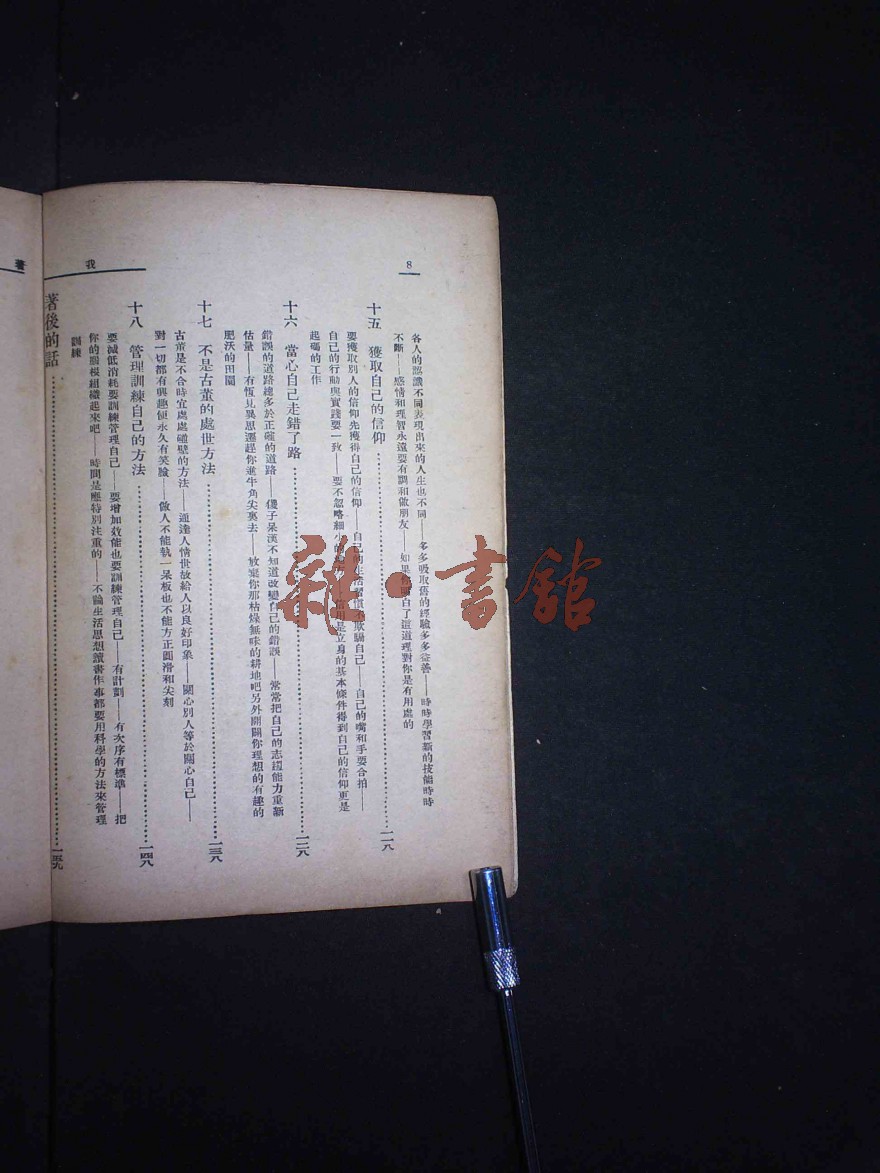 8
我
各人的認識不同表現出來的人生也不同——多多吸取舊的經驗多多益善——時時學習新的技能時時
不斷——感情和理智永遠要有調和做朋友——如果你明白了這道理對你是有用處的
十五 獲取自己的信仰…………一一八
要獲取別人的信仰先獲得自己的信仰——自己的生活習慣不欺騙自己——自己的嘴和手要合拍——
自己的行動與實踐要一致——要不忽略細 的 ——信用是立身的基本條件得到自己的信仰更是
起碼的工作
十六 當心自己走錯了路…………一二八
錯誤的道路總多於正確的道路——傻子呆漢不知道改變自己的錯誤——常常把自己的志趣能力重新
估量——有恆見異思遷趕你進牛角尖裏去——放棄你那枯燥無味的耕地吧另外開闢你理想的有趣的
肥沃的田園
十七 不是古董的處世方法…………一三八
古董是不合時宜處處碰壁的方法——通達人情世故給人以良好印象——關心別人等於關心自己——
對一切都有興趣便永久有笑臉——做人不能執一呆板也不能方正圓滑和尖刻
十八 管理訓練自己的方法…………一四八
要減低消耗要訓練管理自己——要增加效能也要訓練管理自己——有計劃——有次序有標準——把
你的規模組織起來吧——時間是應特別注重的——不論生活思想讀書作事都要用科學的方法來管理
訓練
著後的話…………一五九
著
雜·書館